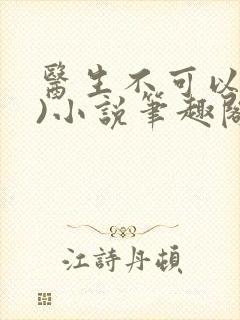 醫生不可以
)小說筆趣閣
江詩丹頓